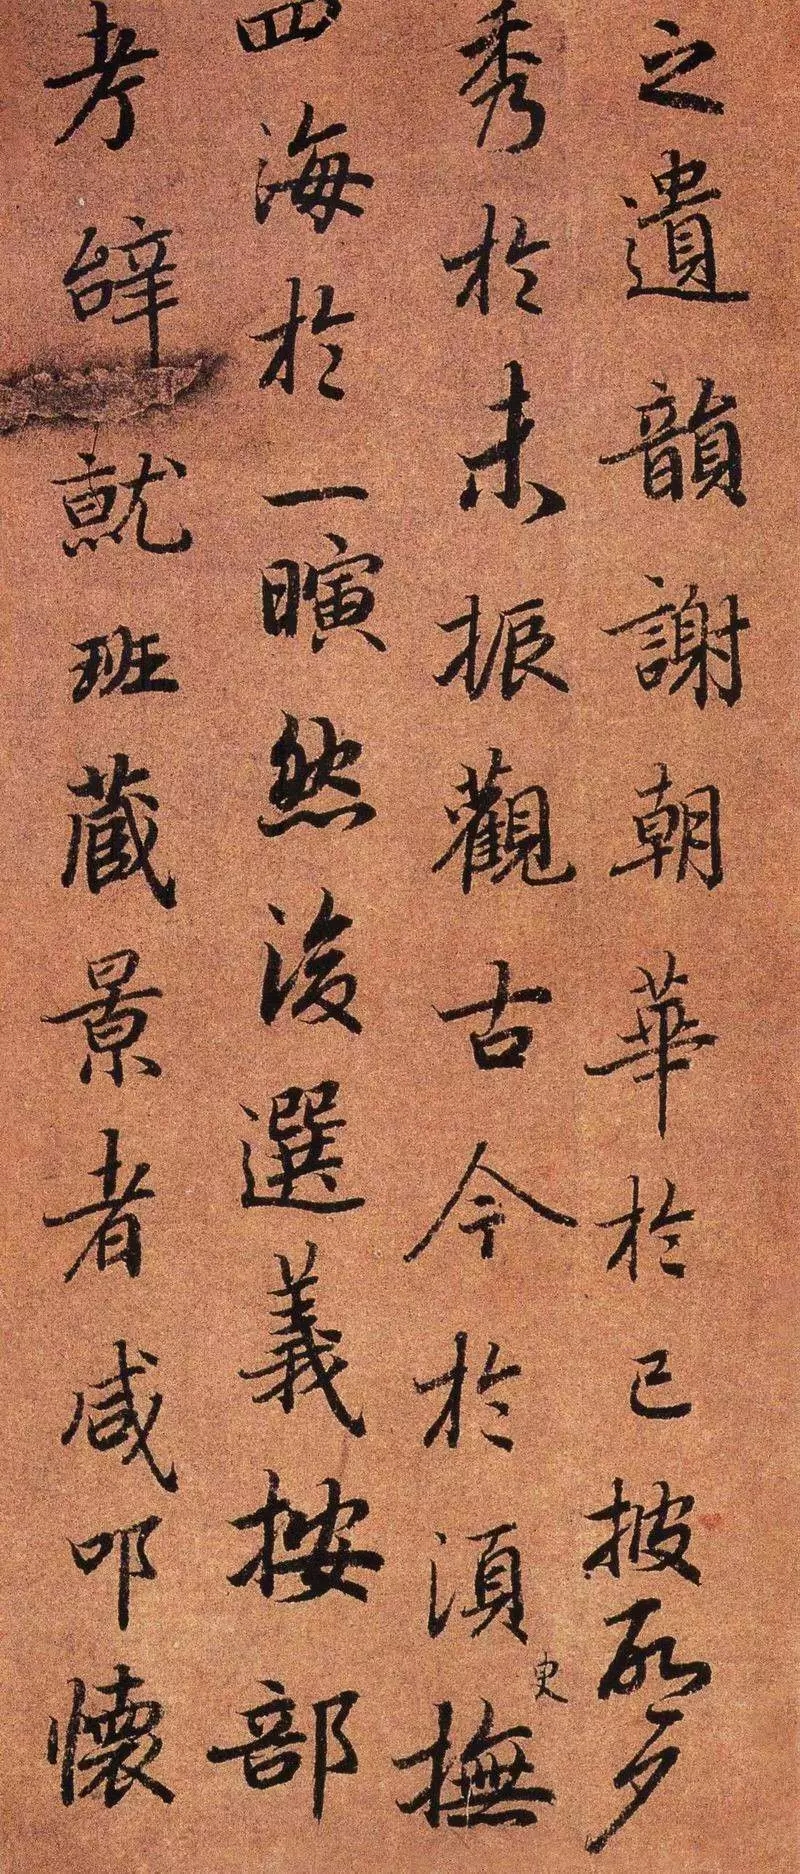 之遺韻謝朝華於已披啓夕
秀於未振觀古今於須史撫
四海於一瞚然後選義按部
考辭就班藏景者咸叩懷